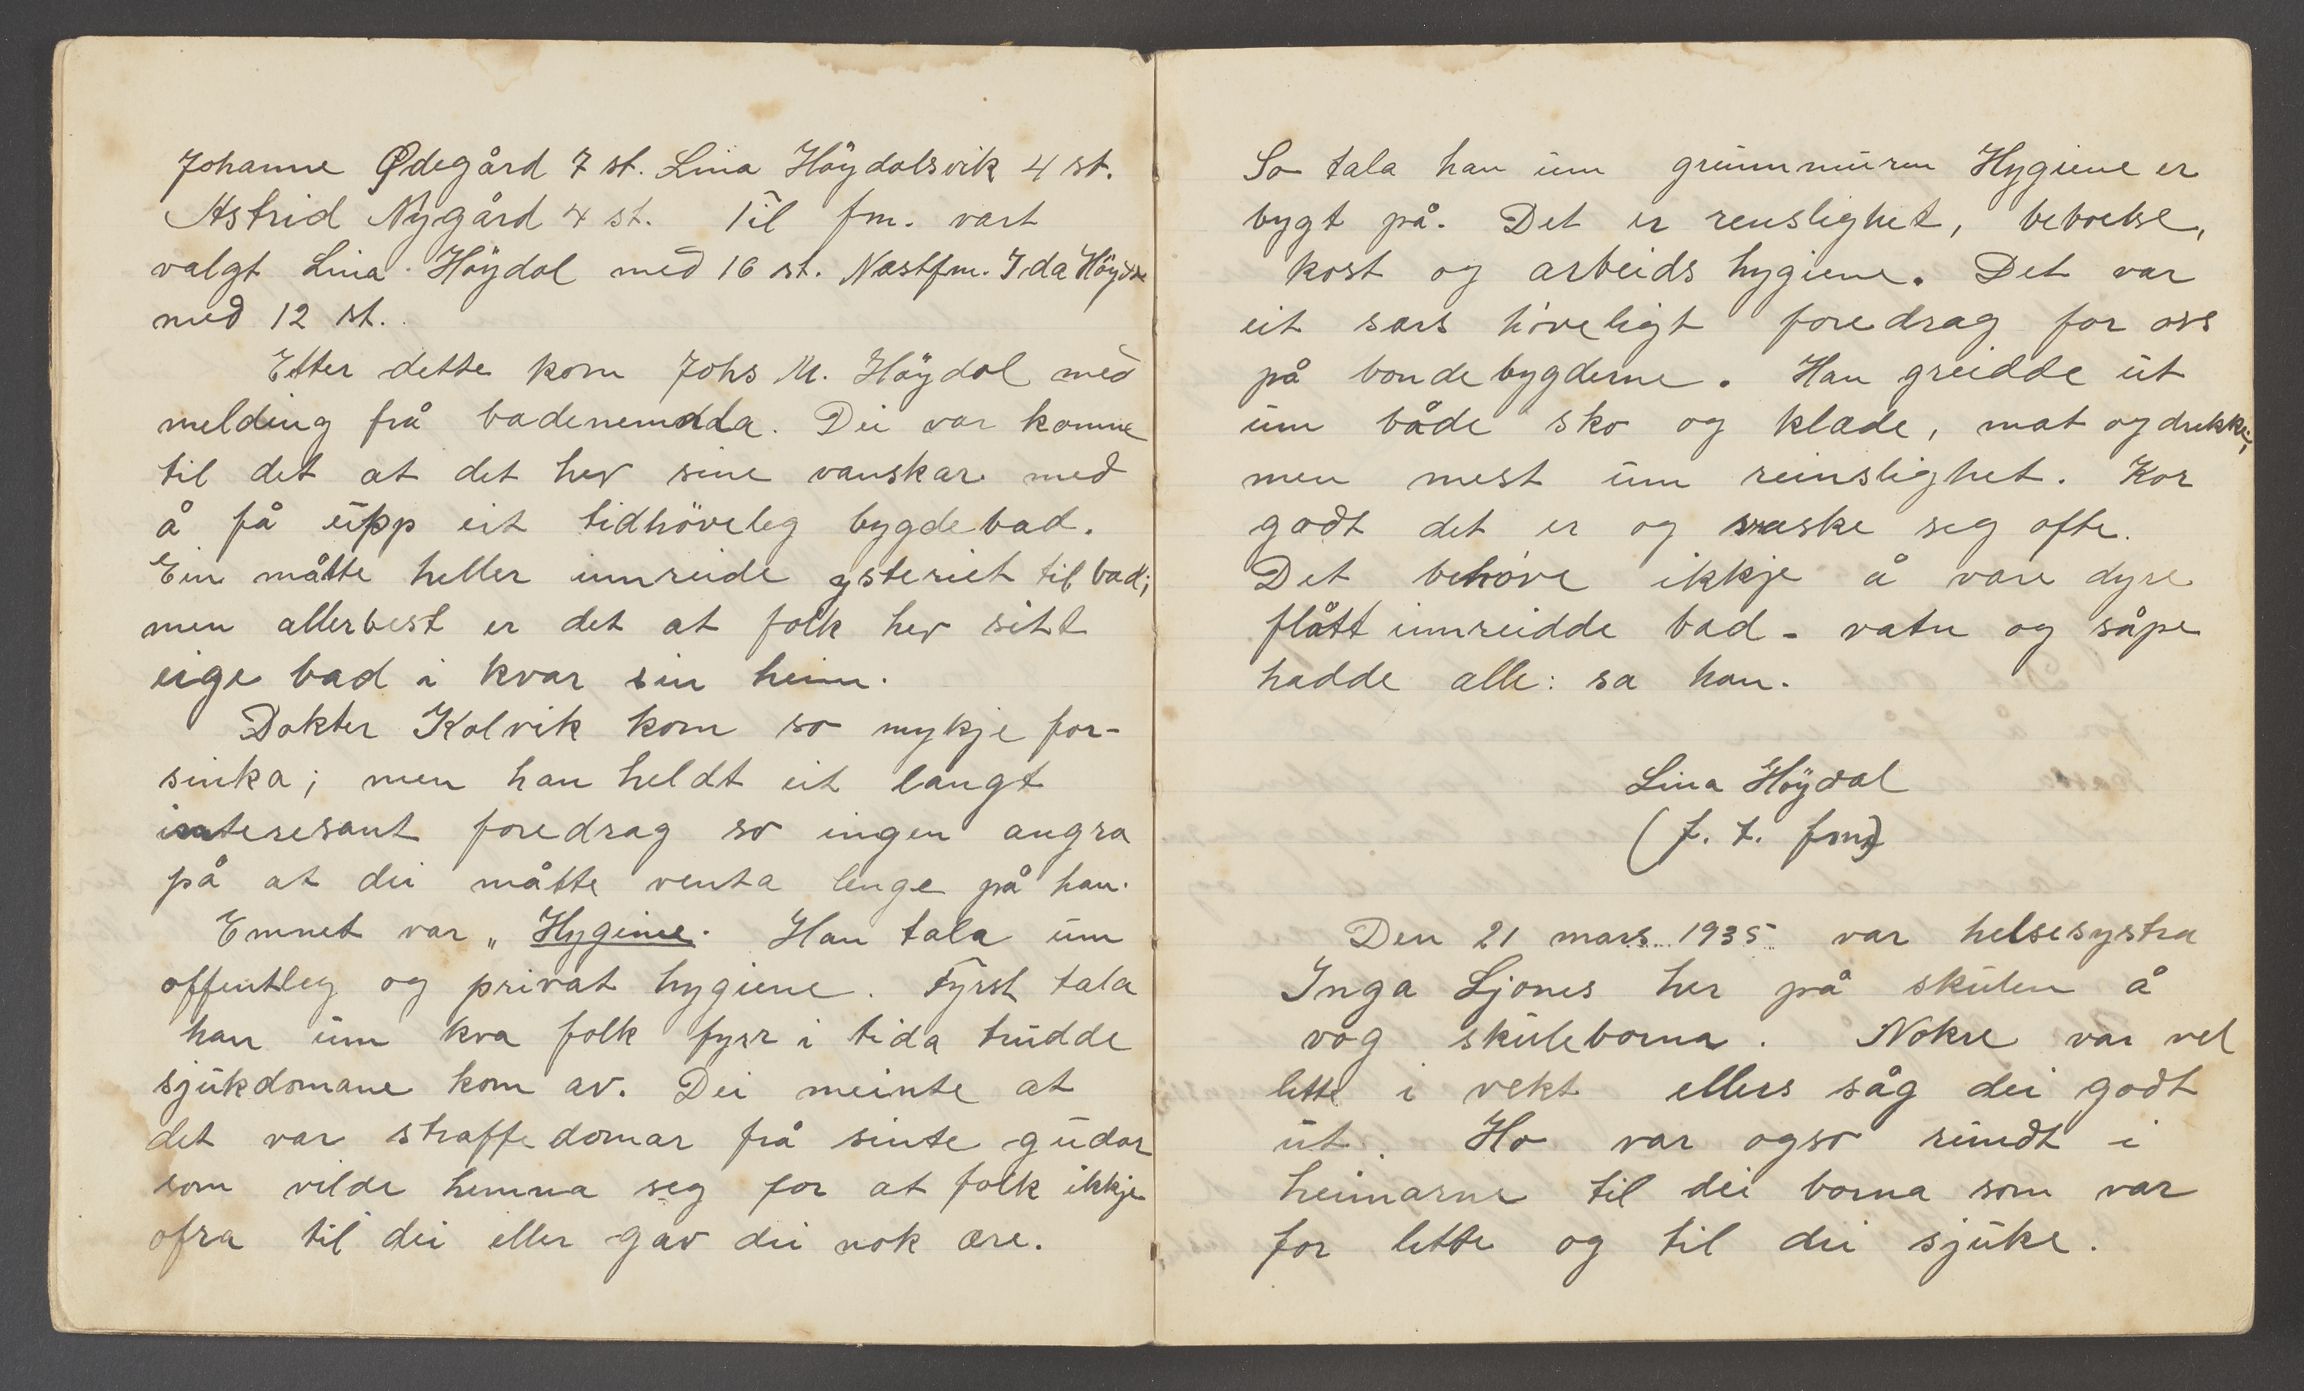 Johanne Ødegård 7 st. Lina Höydalsvik 4 st.
Astrid Nygård 4 st. Til fm. vart
valgt Lina Höydal med 16 st. Næstfm. Ida Höydal
med 12 st.
Etter dette kom Johs M. Höydal med
melding frå badenemnda. Dei var komne
til det at det hev sine vanskar med
å få upp eit tidhöveleg bygdebad.
Ein måtte heller innreide ysteriet til bad;
men allerbest er det at folk hev sitt
eige bad i kvar sin heim.
Dokter Kolvik kom so mykje for-
sinka; men han heldt eit langt
interesant foredrag so ingen angra
på at dei måtte venta lenge på han.
Emnet var „Hygiene. Han tala um
offentleg og privat hygiene. Fyrst tala
han um kva folk fyrr i tida trudde
sjukdomane kom av. Dei meinte at
det var straffedomar frå sinte gudar
som vilde hemna seg for at folk ikkje
ofra til dei eller gav dei nok ære.
So tala han um grunnmuren Hygiene er
bygt på. Det er renslighet, beboelse,
kost og arbeids hygiene. Det var
eit særs höveligt foredrag for oss
på bondebygderne. Han greidde ut
um både sko og klæde, mat og drikke;
men mest um reinslighet. Kor
godt det er og vaske seg ofte.
Det behöve ikkje å vare dyre
flått innreidde bad - vatn og såpe
hadde alle: sa han.
Lina Höydal
(f. t. fm)
Den 21 mars 1935 var helsesystra
Inga Ljones her på skulen å
vog skuleborna. Nokre var vel
lette i vekt ellers såg dei godt
ut. Ho var ogso rundt i
heimarne til dei borna som var
for lette og til dei sjuke.